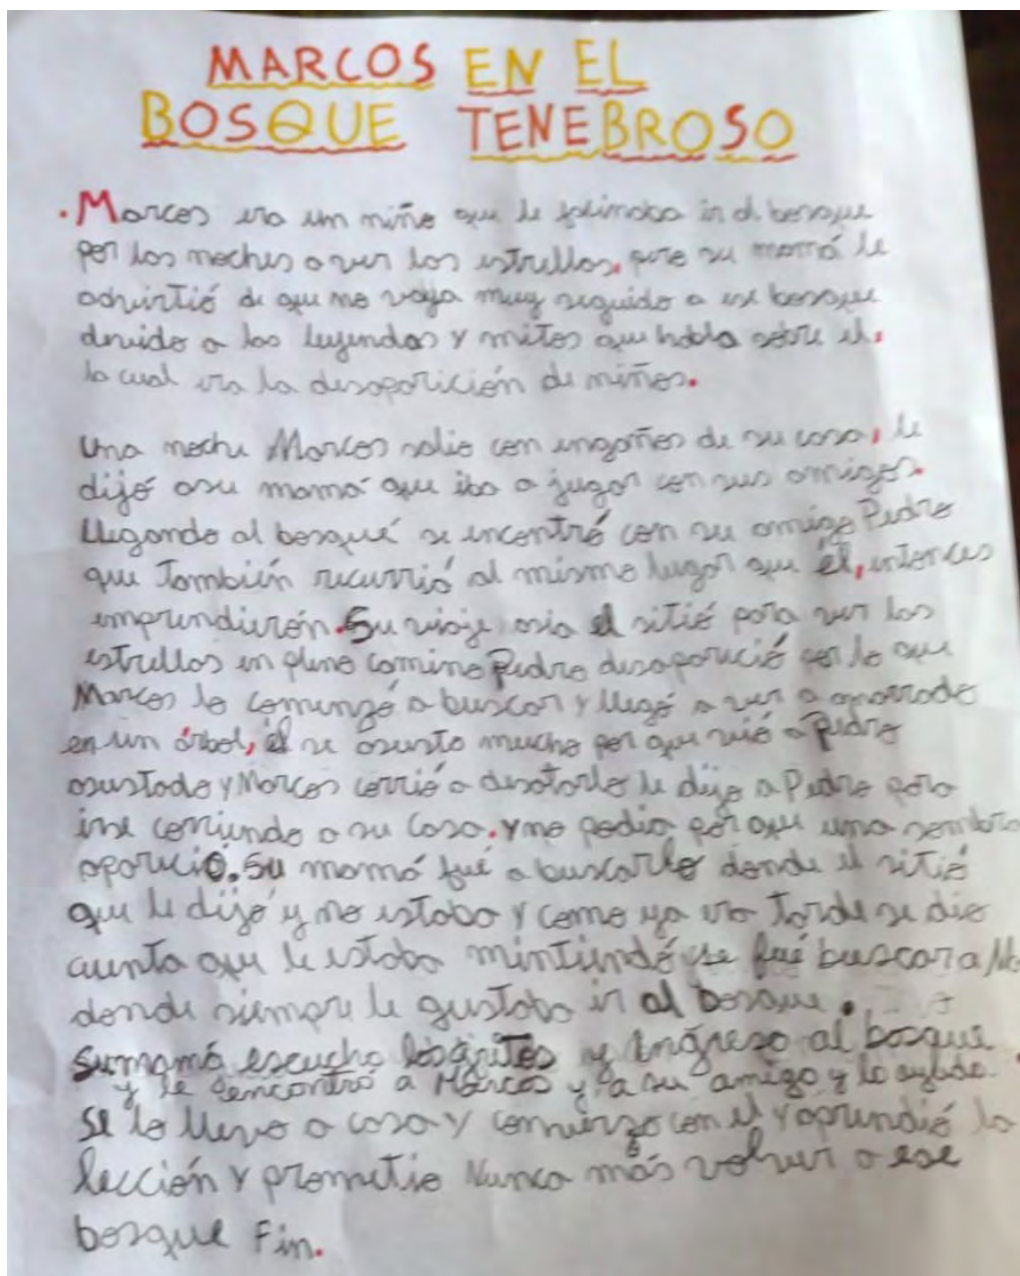 MARCOS EN EL
BOSQUE TENEBROSO
. Marcos era un niño que le fasinaba ir al bosque
por las noches a ver las estrellas. pero su mamá le
advirtió de que no vaya muy seguido a ese bosque
devido a las leyendas y mitos que habla sobre el.
la cual era la desaparición de niños.
Una noche Marcos salio con engaños de su casa, le
dijó asu mamá que iba a jugar con sus amigos.
Llegando al bosqué se encontró con su amigo Pedro
que También recurrió al mismo lugar que él, entonces
emprendierón. Su viaje asia el sitió para ver las
estrellas en pleno camino Pedro desapareció por lo que
Marcos lo comenzó a buscar y llegó a ver a amarrado
en un árbol, él se asusto mucho por que vió a Pedro
asustado y Marcos corrió a desatarlo le dijo a Pedro para
irse corriendo a su casa. y no podia porque una sombra
aparició. Su mamá fué a buscarlo donde el sitió
que le dijó y no estaba y como ya era Tarde se dio
cuenta que le estaba mintiendó se fué buscar a
donde siempre le gustaba ir al bosque.
su mamá escucho los gritos y Ingreso al bosque
y le encontró a Marcos y a su amigo y lo ayudo.
Se lo llevo a casa y con el y aprendió la
lección y prometio Nunca más volver a ese
bosque Fin.